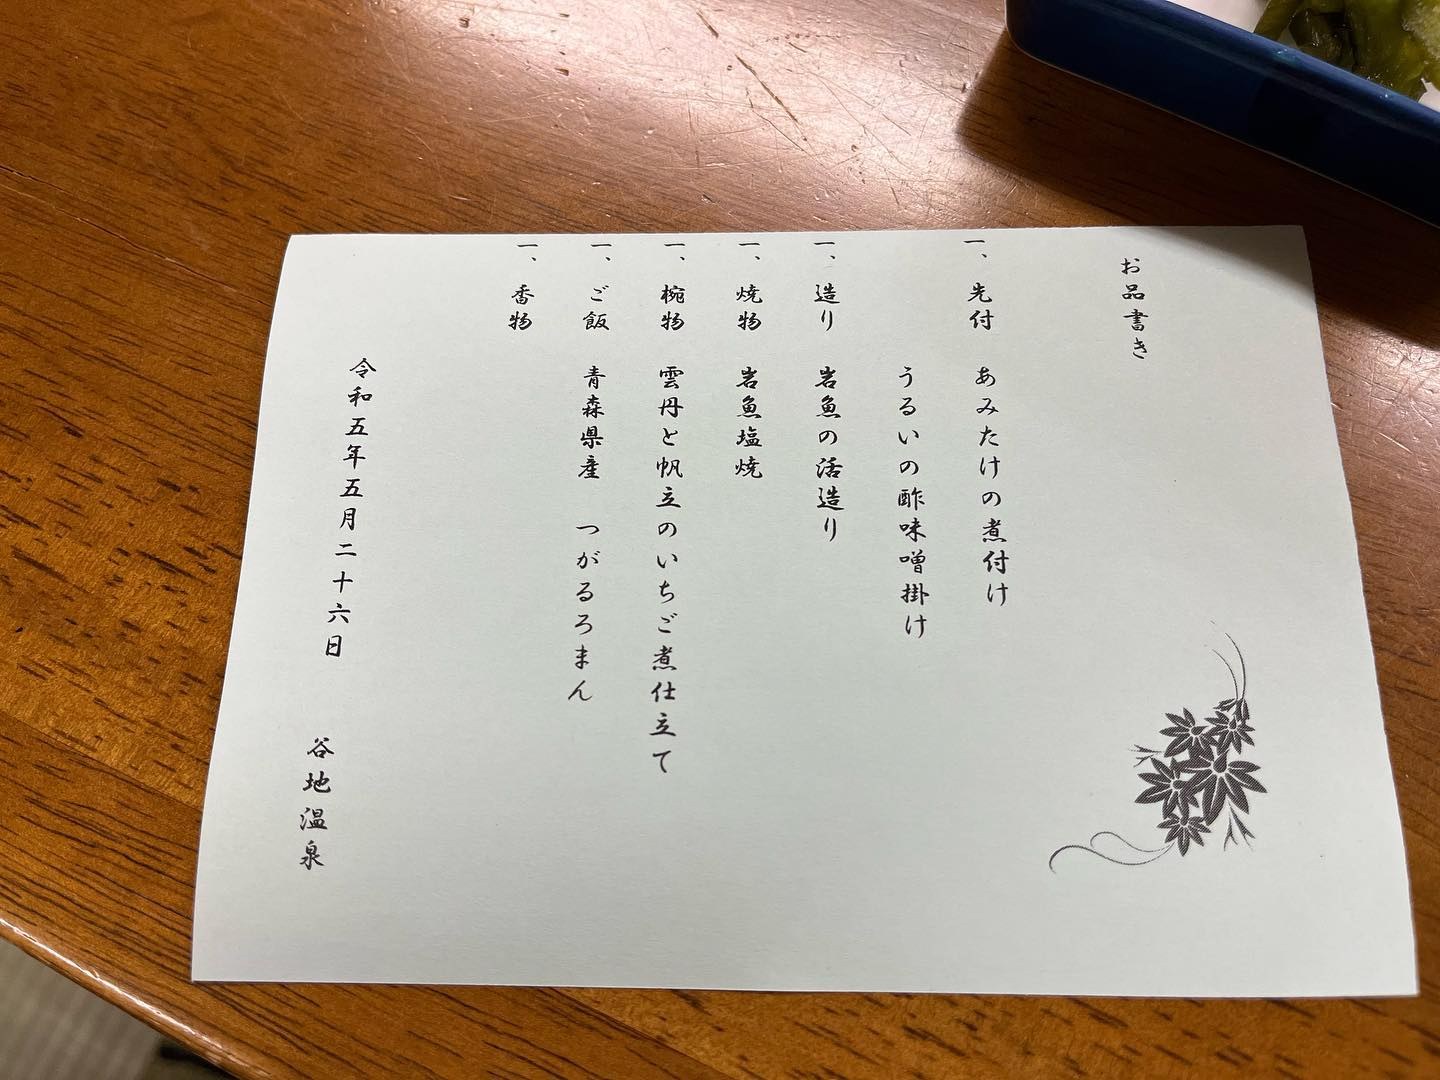 お品書き
一、先付　あみたけの煮付け
うるいの酢味噌掛け
一、造り　岩魚の活造り
一、焼物　岩魚塩焼
一、椀物　雲丹と帆立のいちご煮仕立て
一、ご飯　青森県産　つがるろまん
一、香物
令和五年五月二十六日　谷地温泉